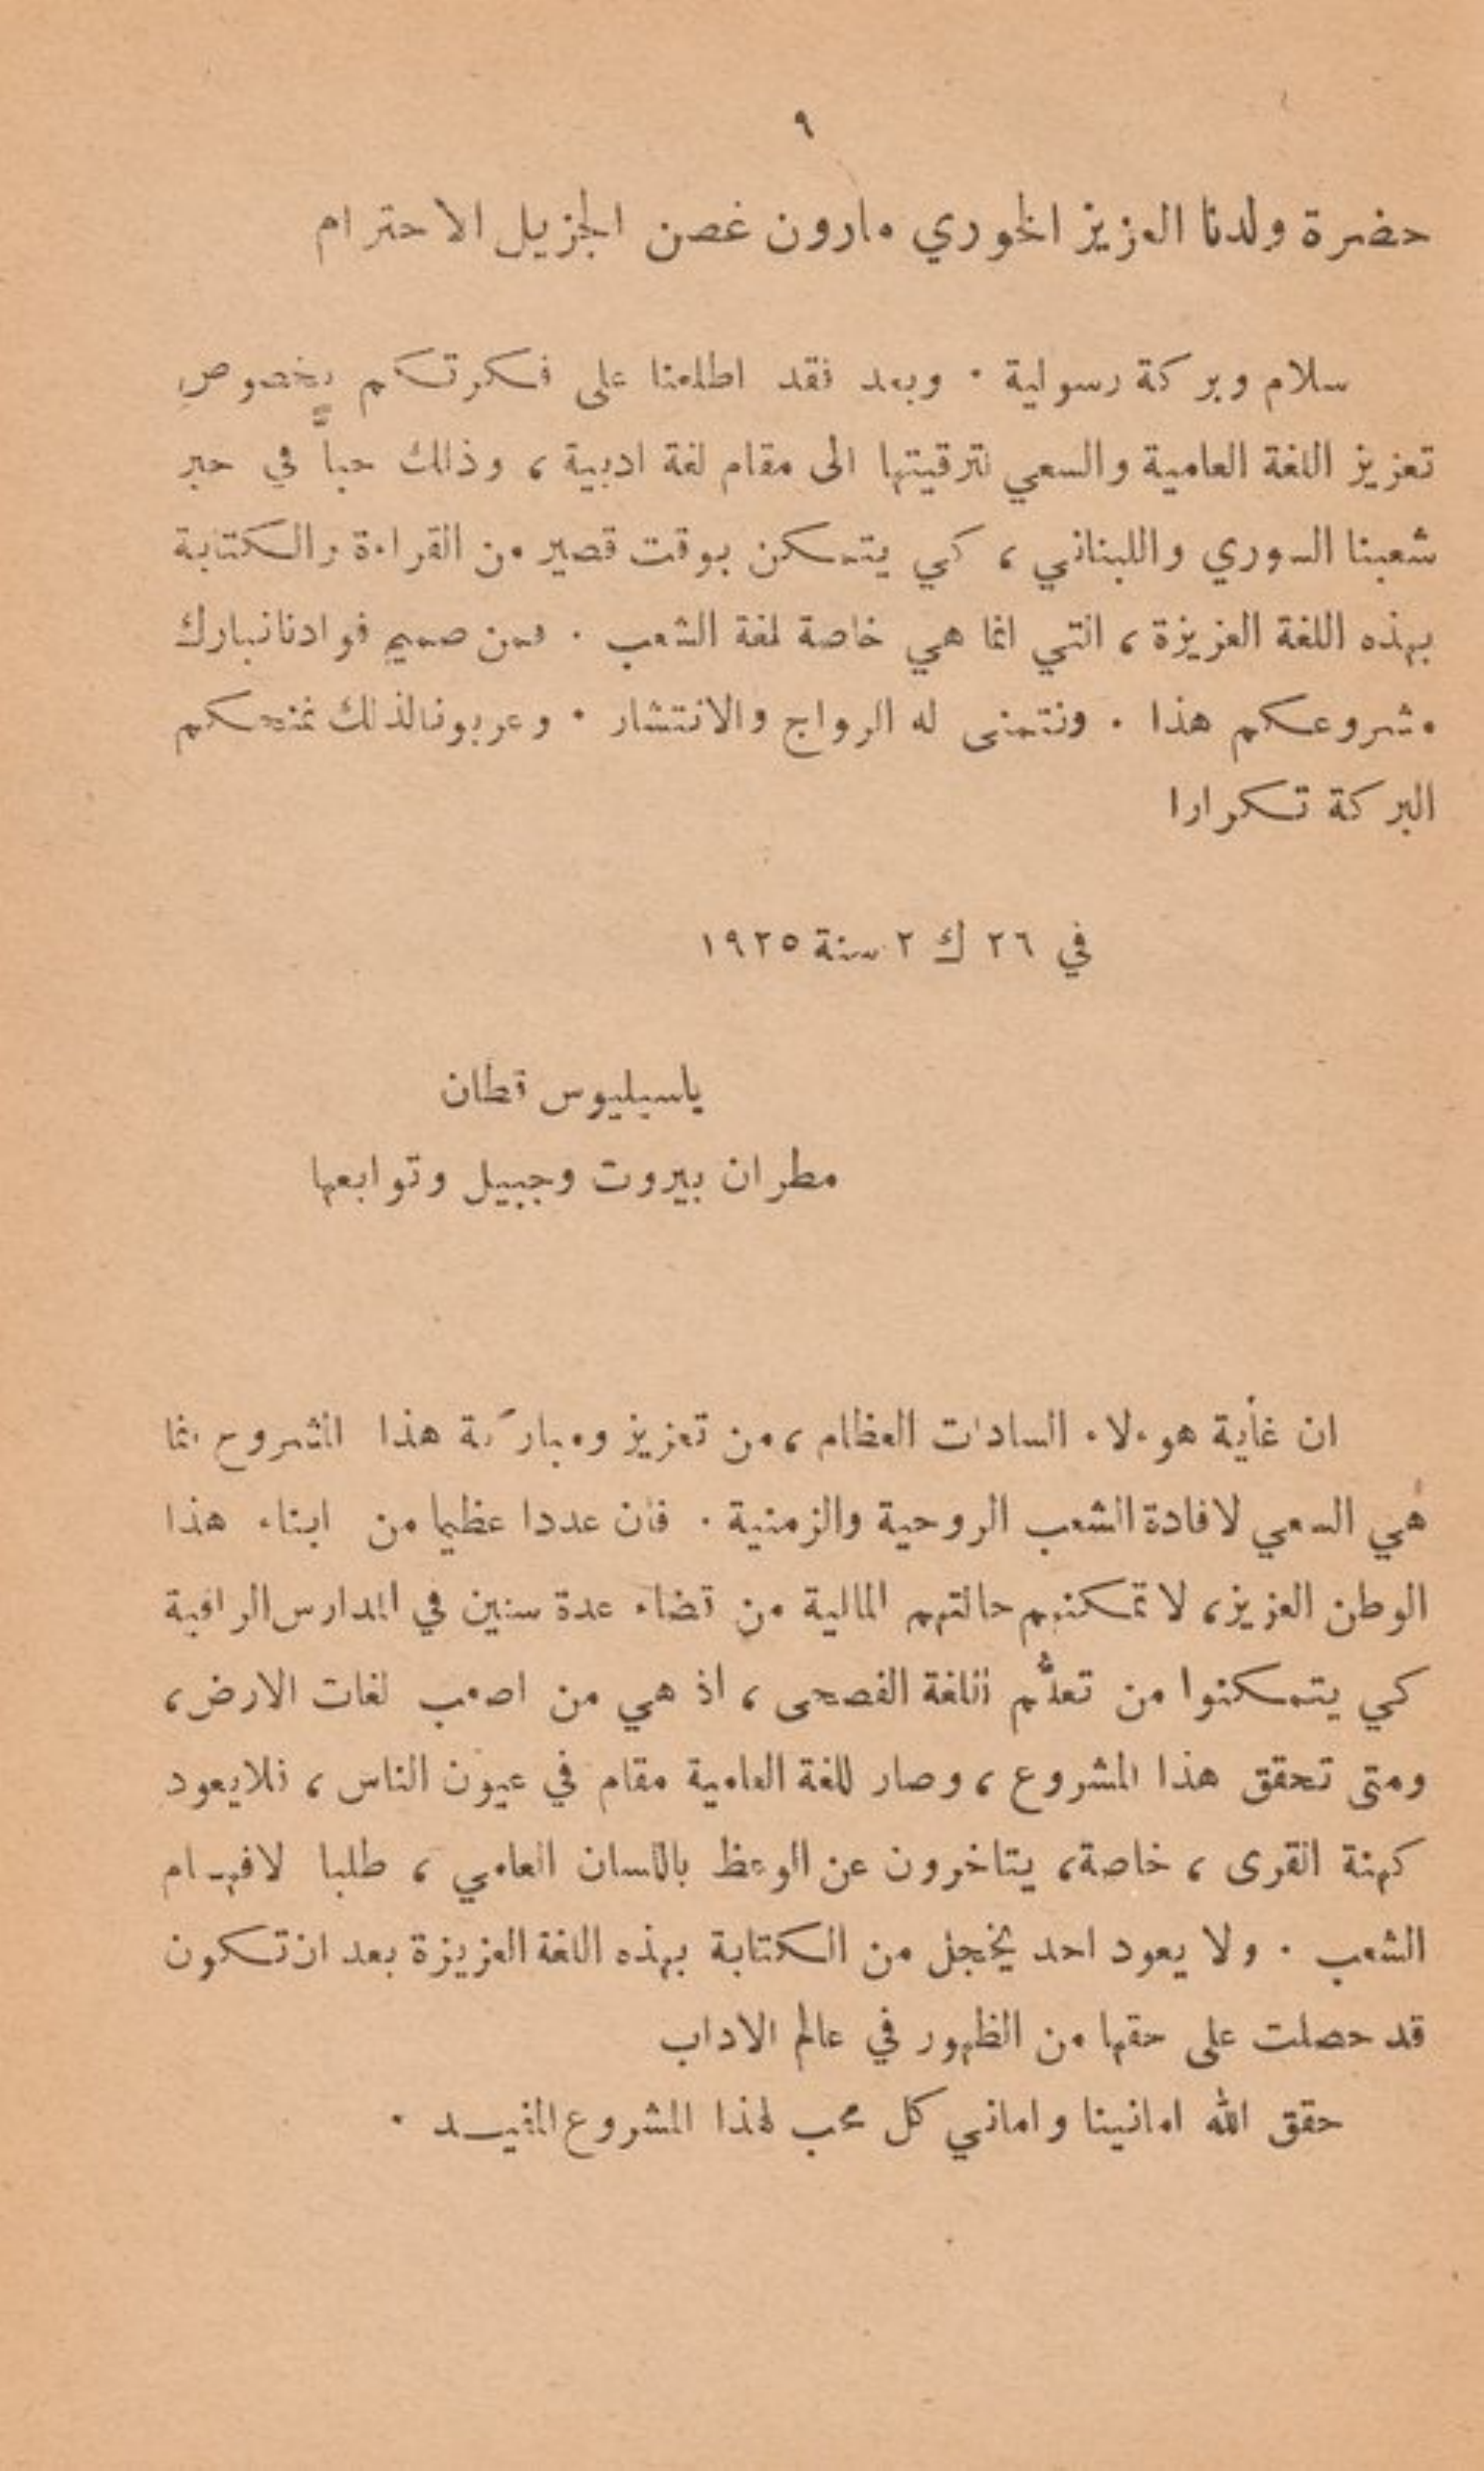 ٩
حضرة ولدنا العزيز الخوري مارون غصن الجزيل الاحترام
سلام وبركة رسولية . وبعد فقد اطلعنا على فكرتكم بخصوص
تعزيز اللغة العامية والسعي لترقيتها الى مقام لغة ادبية ، وذلك حباً في
شعبنا السوري واللبناني ، كي يتمكن بوقت قصير من القراءة والكتابة
بهذه اللغة العزيزة ، التي انما هي خاصة لغة الشعب . فمن صميم فوادنا نبارك
مشروعكم هذا . ونتمنى له الرواج والانتشار . وعربونا لذلك نمنحكم
البركة تكرارا
في ٢٦ ك ٢ سنة ١٩٢٥
باسيليوس قطان
مطران بيروت وجبيل وتوابعها
ان غاية هو٠لاء السادات العظام ، من تعزيز ومباركة هذا المشروع انما
هي السعي لافادة الشعب الروحية والزمنية . فان عددا عظيما من ابناء هذا
الوطن العزيز ، لا تمكنهم حالتهم المالية من قضاء عدة سنين في المدارس الراقية
كي يتمكنوا من تعلُّم اللغة الفصحى ، اذ هي من اصعب لغات الارض ،
ومتى تحقق هذا المشروع ، وصار للغة العامية مقام في عيون الناس ، فلا يعود
كهنة القرى ، خاصة ، يتاخرون عن الوعظ باللسان العامي ، طلبا لافهام
الشعب . ولا يعود احد يخجل من الكتابة بهذه اللغة العزيزة بعد ان تكون
قد حصلت على حقها من الظهور في عالم الاداب
حقق الله امانينا واماني كل محب لهذا المشروع المفيد .